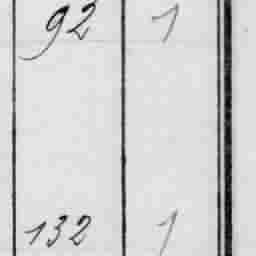 92 1
132 1